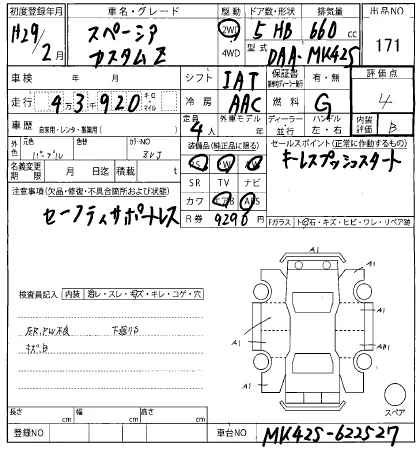 初度登録年月 車名・グレード 駆動 ドア数・形状 排気量 出品NO
H29/2月 スペーシア カスタムZ 2WD 4WD 5HB 660cc 171
型式 DAA-MK42S
車検 年 月 シフト IAT 保証書 有・無 評価点
走行 4万3千920 キロ・マイル 冷房 AAC 燃料 G 4
車歴 自家用・レンタ・事業用( ) 定員 4人 外車モデル 年 ディーラー・並行 ハンドル 左・右 内装評価 B
外色 元色 パープル カラーNO ZWJ 装備品(純正品に限る) セールスポイント(正常に作動するもの)
PS PW キーレスプッシュスタート
名義変更期限 月 日迄 積載 t SR TV ナビ
注意事項(欠品・修復・不具合箇所および状態) カワ エアB ABS
セーフティサポートレス R券 9290円 Fガラス 飛石・キズ・ヒビ・ワレ・リペア跡
検査員記入 内装 汚レ・スレ・キズ・キレ・コゲ・穴
下廻りS
キズ,B
A1
A1
A1
A1
A1
スペア
長さ cm 幅 cm 高さ cm
登録NO 車台NO MK42S-622527